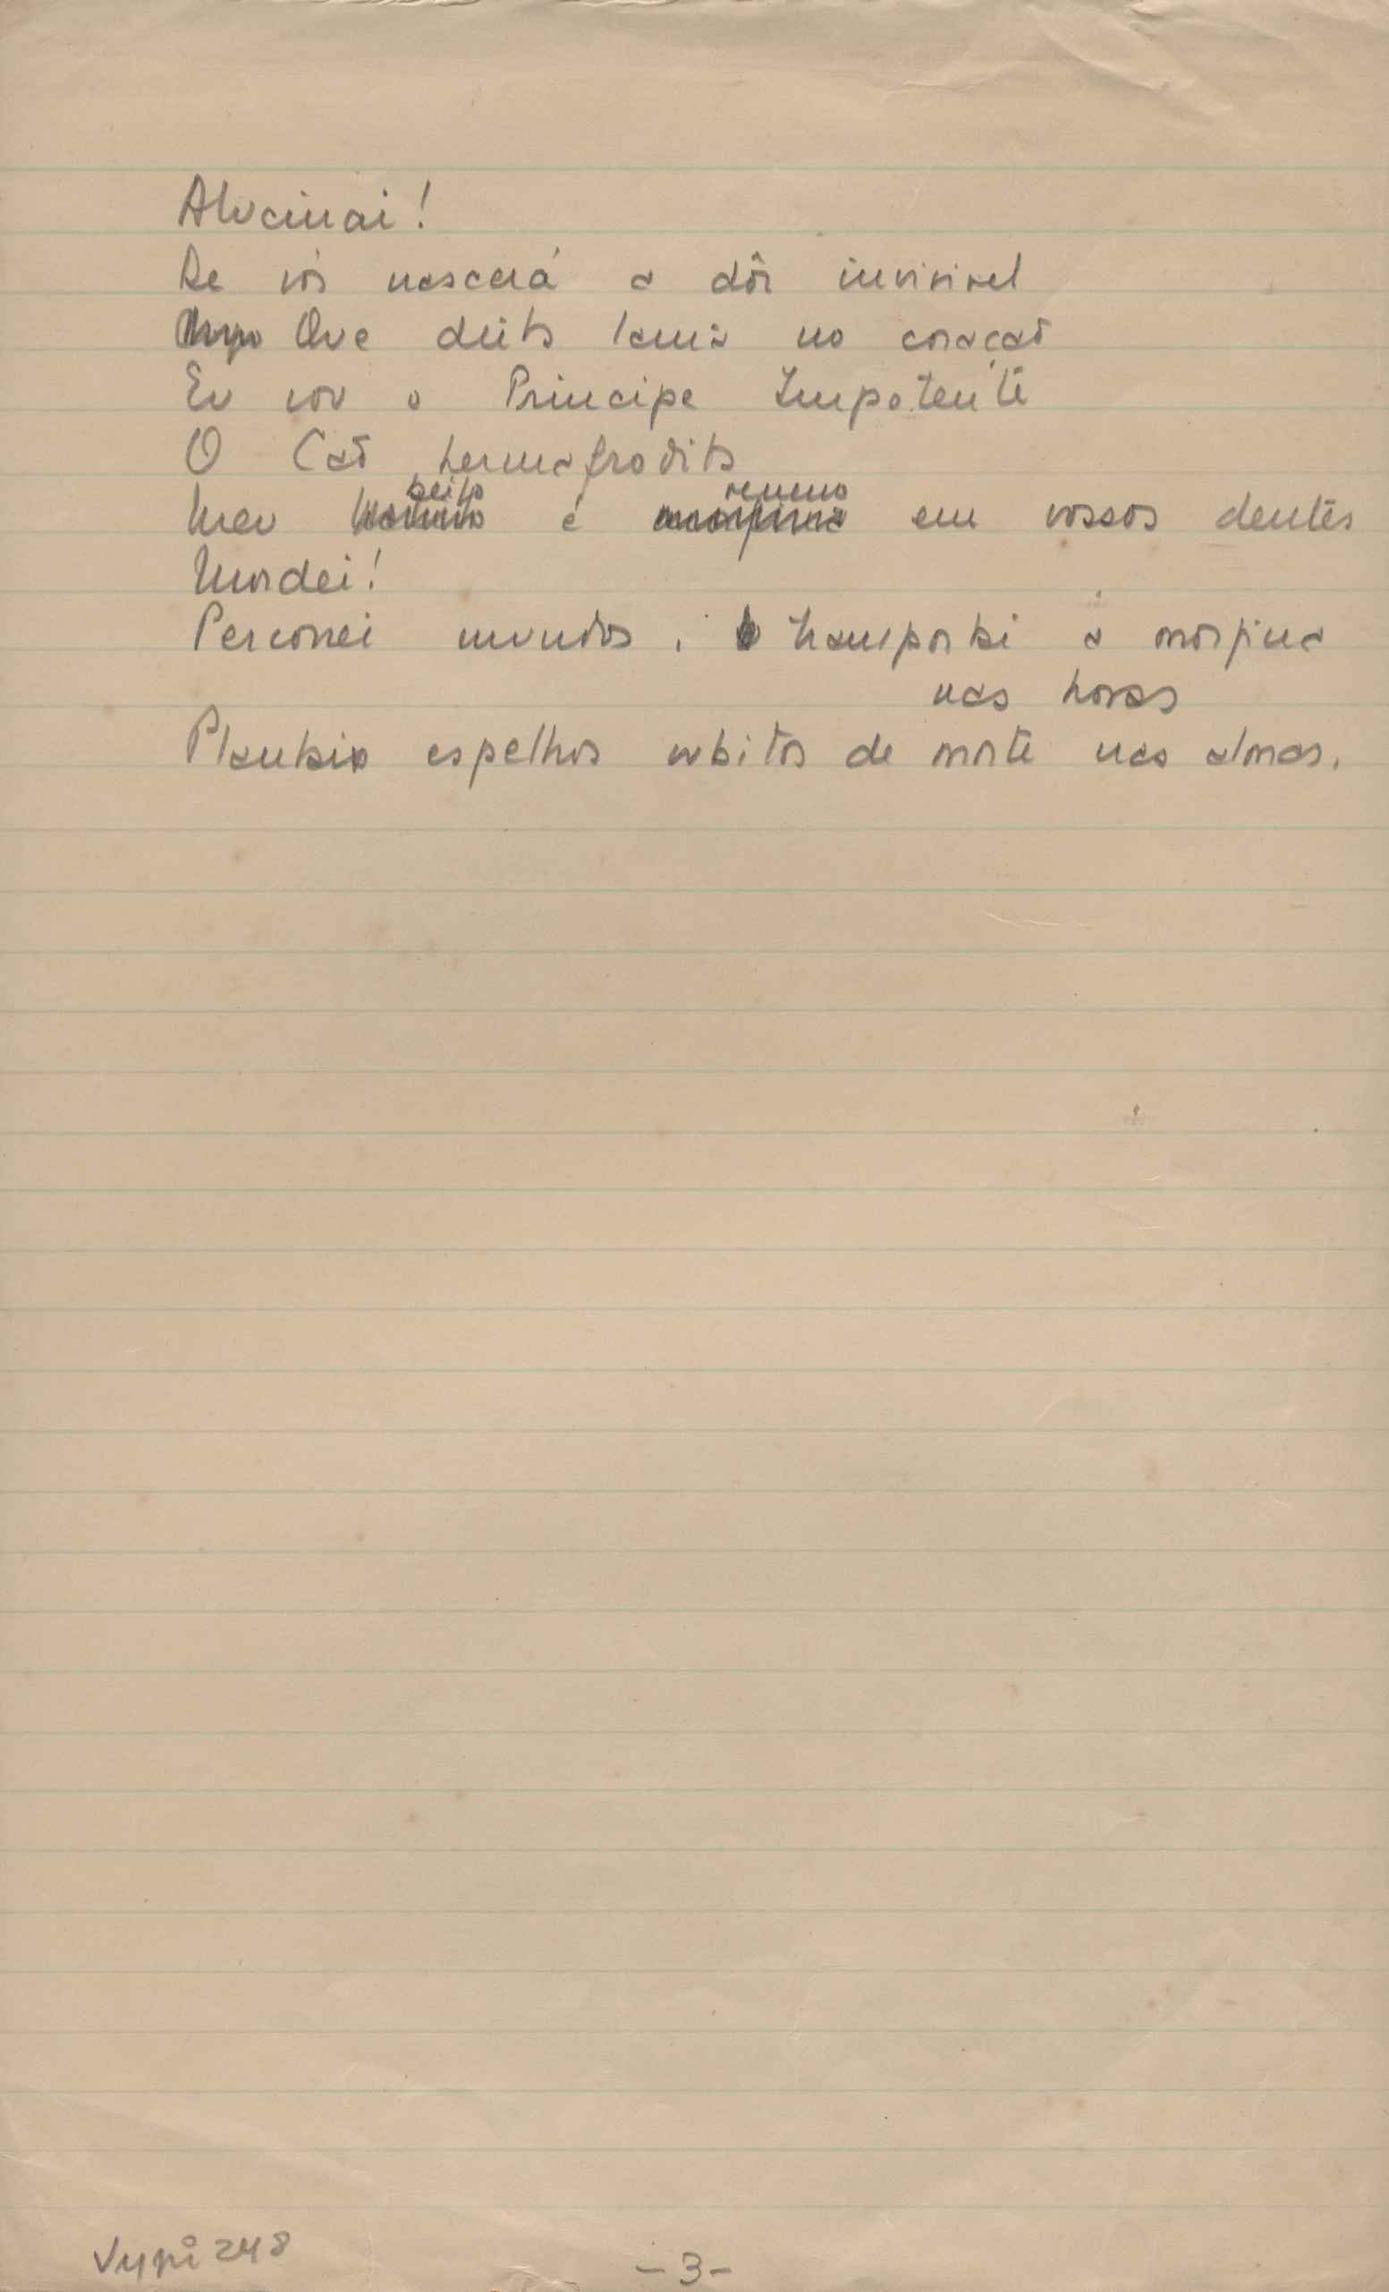 Alucinai!
De vós nascerá a dôr invisivel
Que deito lama no coração
Eu sou o Principe Impotente
O Cão hermafrodito
peito veneno
Meu é morfina em vossos dentes
Mordei!
Percorrei mundos, transportai a morfina
nas horas
Plantai espelhos subitos de morte nas almas.
Vypi 248
-3-